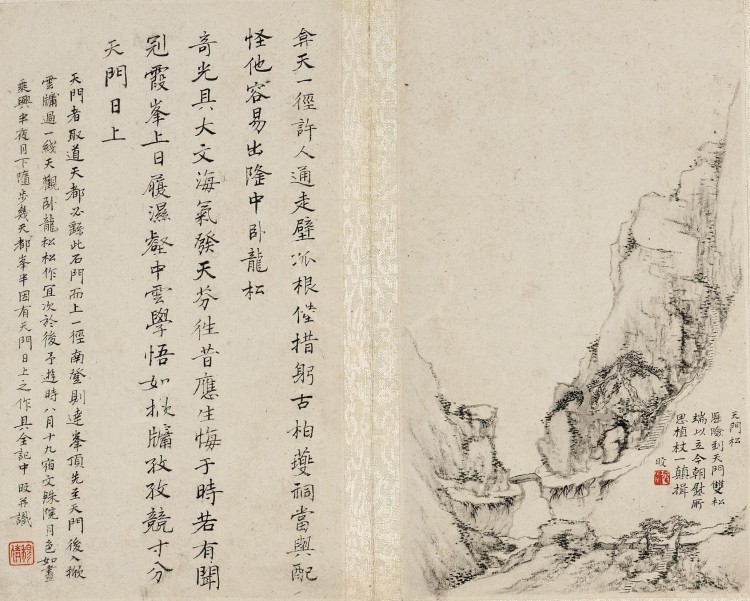 天門松
歷險到天門雙松
端以立今朝慰所
思植杖一顛揖
旼
弇天一徑許人通走壁孤根倦措躬古柏夔祠當與配
怪他容易出隆中卧龍松
奇光具大文海氣發天芬往昔應生悔于時若有聞
冠霞峯上日履濕壑中雲學悟如掀牖孜孜競寸分
天門日上
天門者取道天都必繇此石門而上一徑南登則達峯頂先至天門後入掀
雲牖過一綫天觀卧龍松松作宜次於後予遊時八月十九宿文殊院月色如晝
乘興半夜月下隨步幾天都峯半因有天門日上之作具全記中旼并識